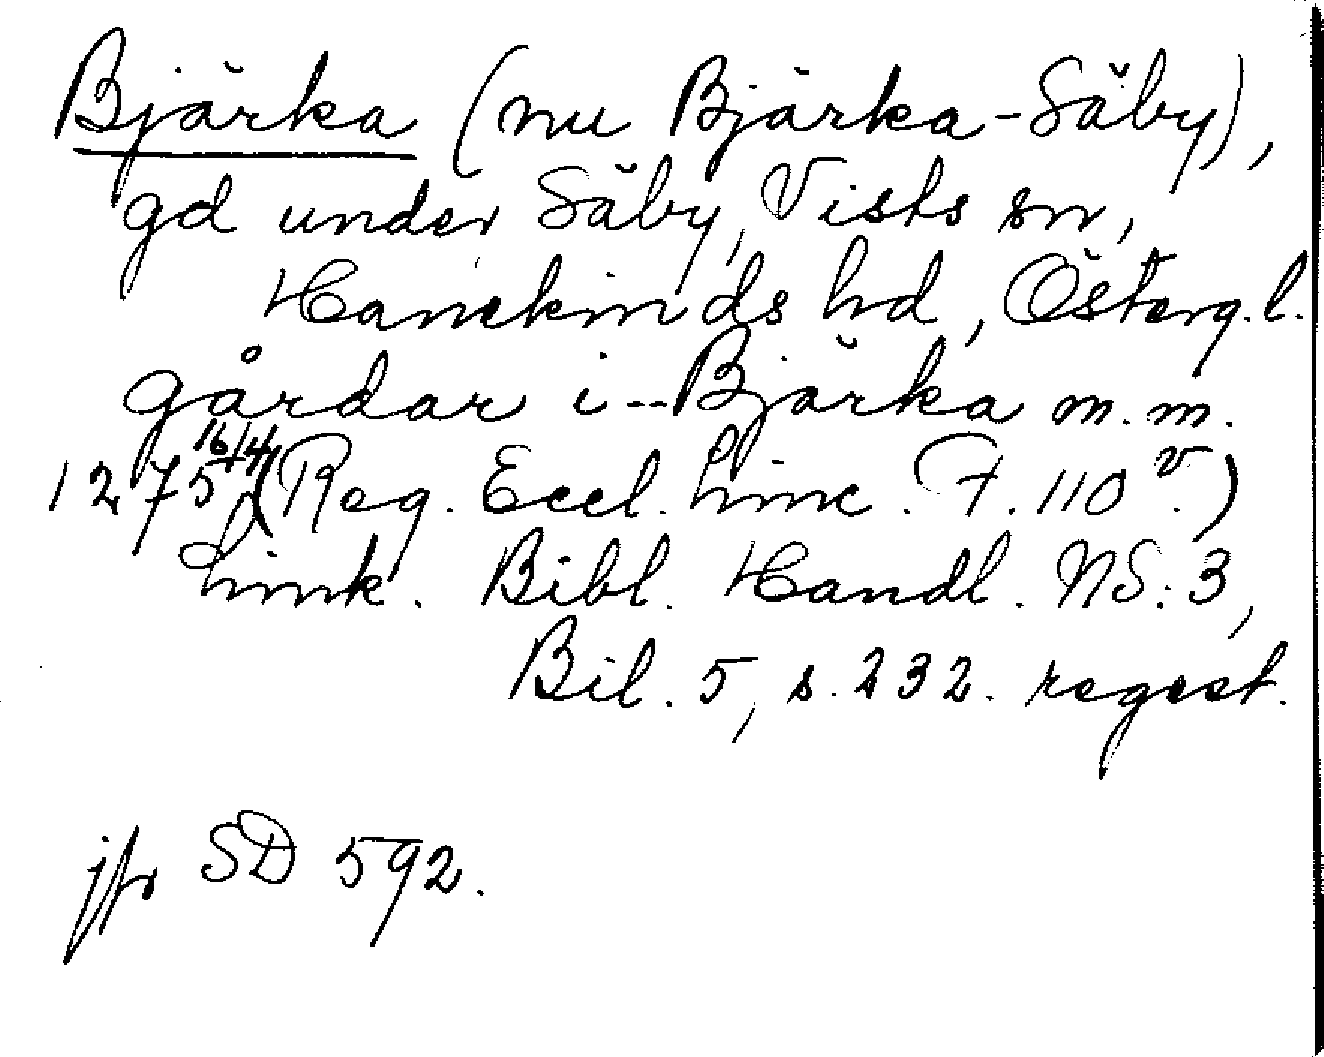 Bjärka (nu Bjärka-Säby),
gd under Säby, Vists sn,
Hanekinds hd, Österg.l.
gårdar i -- Bjärka m.m.
1275 16/4 (Reg. Eccl. Linc. F. 110 v.)
Link. Bibl. Handl. NS: 3,
Bil. 5, s. 232. regest.
jfr SD 592.